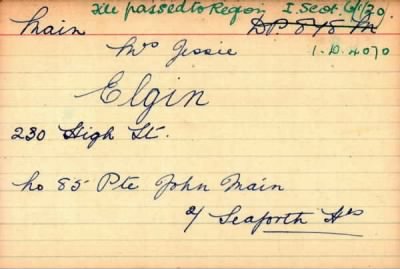 File passed to Region I. Scot. 6/1/20.
Main DP 878 M
Mrs Jessie 1.D.4070
Elgin
230 High St.
No 85 Pte John Main
2/ Seaforth Hrs